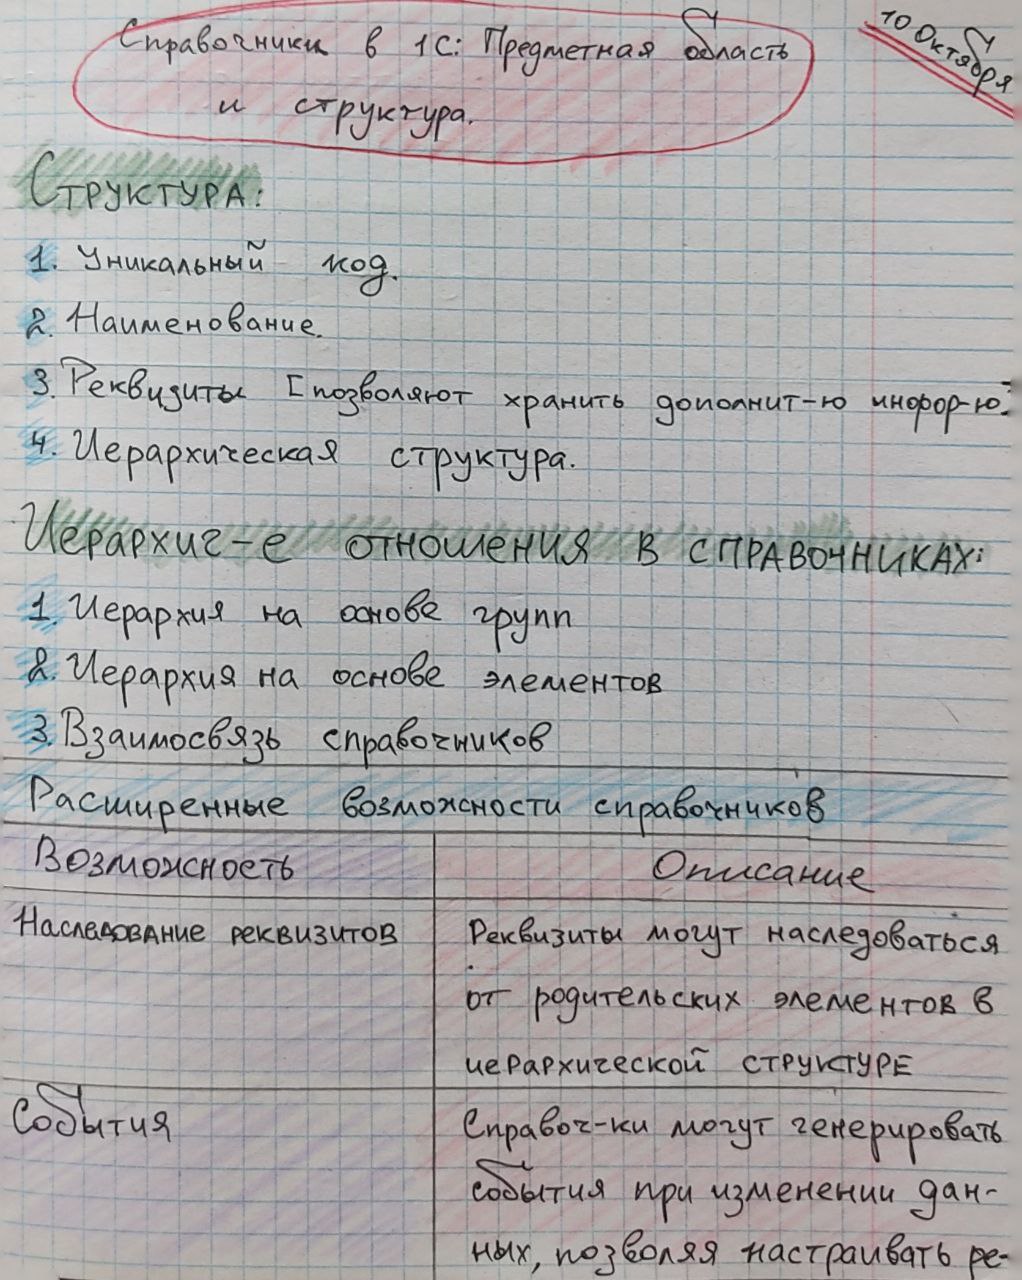 Справочники в 1С: Предметная область
и структура.
10 Октября
Структура:
1. Уникальный код.
2. Наименование.
3. Реквизиты [позволяют хранить дополнит-ю инфор-ю.]
4. Иерархическая структура.
Иерархич-е отношения в справочниках:
1. Иерархия на основе групп
2. Иерархия на основе элементов
3. Взаимосвязь справочников
Расширенные возможности справочников
Возможность Описание
Наследование реквизитов
Реквизиты могут наследоваться
от родительских элементов в
иерархической структуре
События
Справоч-ки могут генерировать
события при изменении дан-
ных, позволяя настраивать ре-